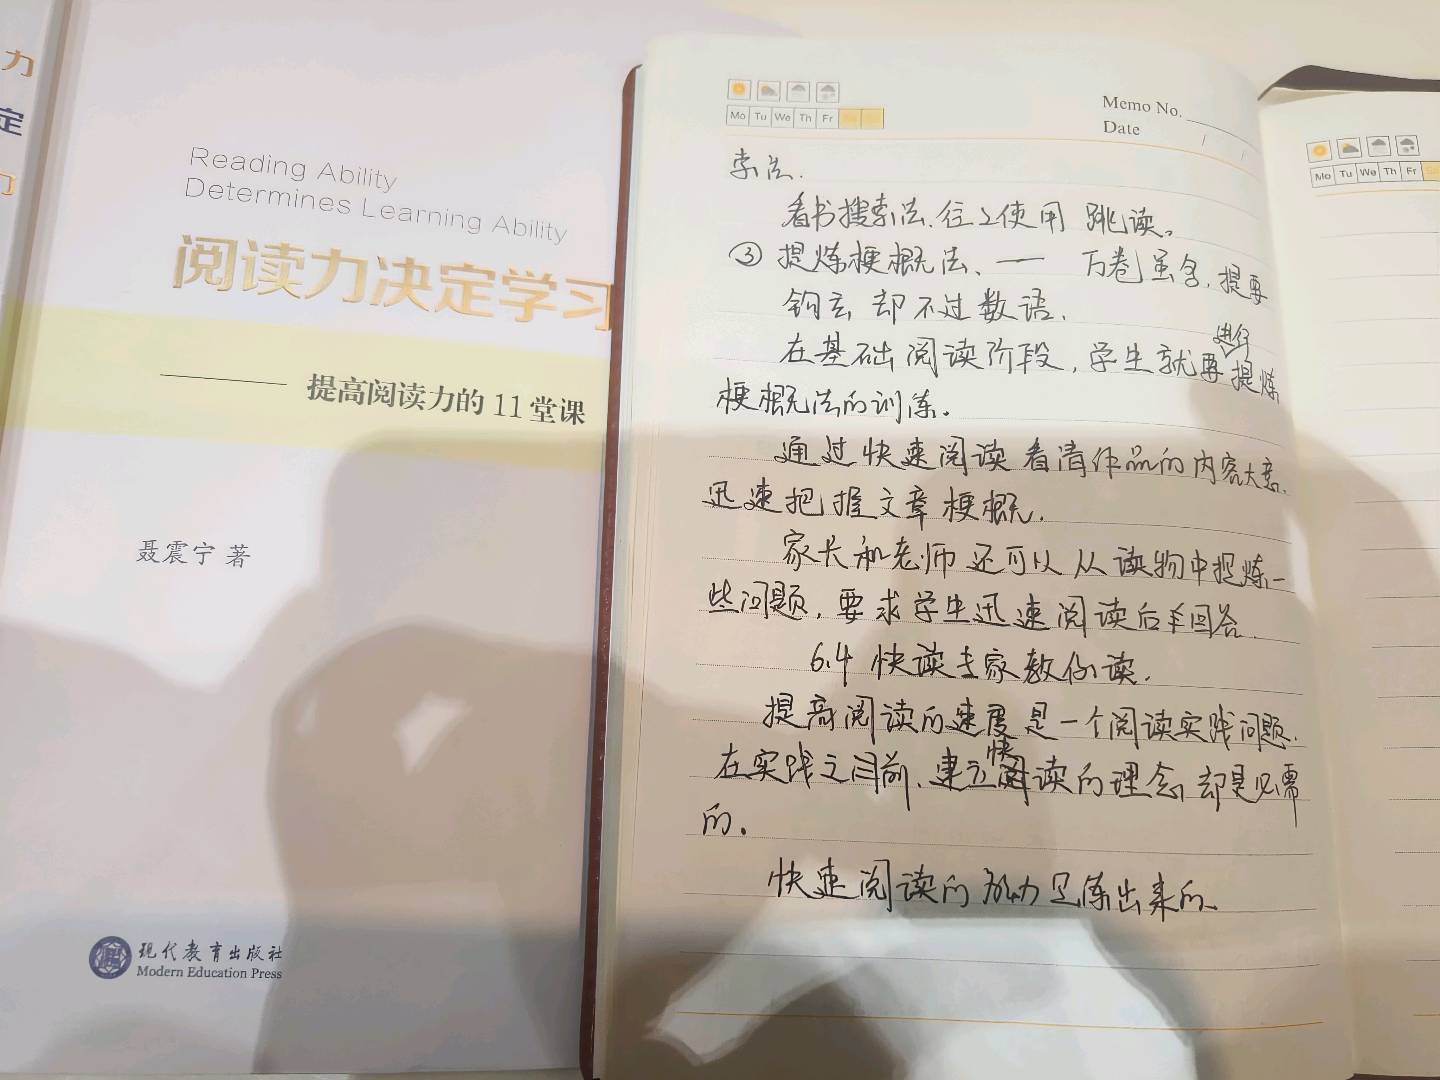 力
定
习
Reading Ability
Determines Learning Ability
阅读力决定学习
提高阅读力的11堂课
聂震宁 著
现代教育出版社
Modern Education Press
Mo Tu We Th Fr Sa Su
Memo No.
Date / /
索法.
看书搜索法、往往使用 跳读。
③ 提炼梗概法、— 万卷虽多,提要
钩玄 却不过数语.
在基础阅读阶段,学生就要进行提炼
梗概法的训练.
通过快速阅读看清作品的内容大意.
迅速把握文章梗概.
家长和老师还可以从读物中提炼一
些问题,要求学生迅速阅读后来回答.
6.4 快读专家教你读.
提高阅读的速度是一个阅读实践问题.
在实践之目前、建立快阅读的理念却是必需
的.
快速阅读的能力是练出来的.
Mo Tu We Th Fr Sa